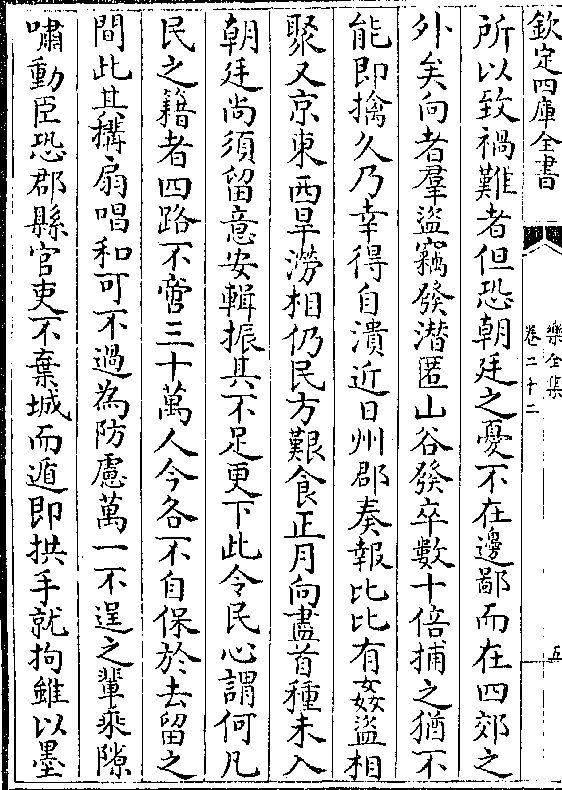 欽定四庫全書
樂全集
卷二十二
五
所以致禍難者但恐朝廷之憂不在邊鄙而在四郊之
外矣向者羣盜竊發潜匿山谷發卒數十倍捕之猶不
能即擒久乃幸得自潰近日州郡奏報比比有姦盜相
聚又京東西旱澇相仍民方艱食正月向盡首種未入
朝廷尚須留意安輯振其不足更下此令民心謂何凡
民之籍者四路不啻三十萬人今各不自保於去留之
間此其搆扇唱和可不過為防慮萬一不逞之輩乘隙
嘯動臣恐郡縣官吏不棄城而遁即拱手就拘雖以墨